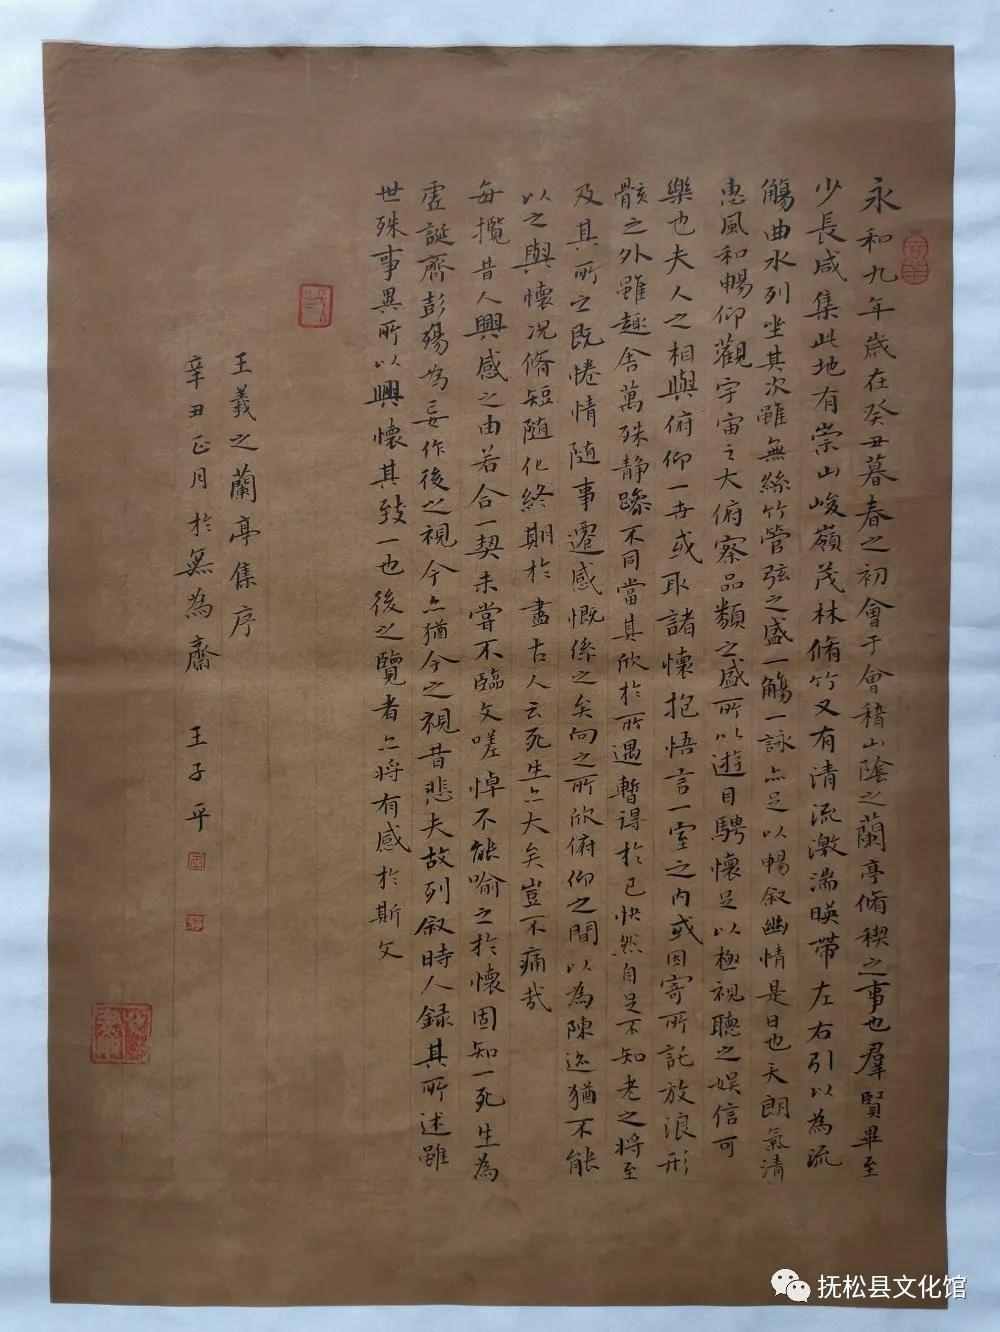 永和九年歲在癸丑暮春之初會于會稽山陰之蘭亭脩稧之事也羣賢畢至
少長咸集此地有崇山峻嶺茂林脩竹又有清流激湍暎帶左右引以為流
觴曲水列坐其次雖無絲竹管弦之盛一觴一詠亦足以暢叙幽情是日也天朗氣清
惠風和暢仰觀宇宙之大俯察品類之盛所以遊目騁懷足以極視聽之娛信可
樂也夫人之相與俯仰一世或取諸懷抱悟言一室之内或因寄所託放浪形
骸之外雖趣舍萬殊静躁不同當其欣於所遇暫得於己快然自足不知老之將至
及其所之既惓情随事遷感慨係之矣向之所欣俯仰之間以為陳迹猶不能
以之興懷况脩短随化終期於盡古人云死生亦大矣豈不痛哉
每攬昔人興感之由若合一契未嘗不臨文嗟悼不能喻之於懷固知一死生為
虚誕齊彭殤為妄作後之視今亦猶今之視昔悲夫故列叙時人録其所述雖
世殊事異所以興懷其致一也後之覽者亦將有感於斯文
王羲之蘭亭集序
辛丑正月於無為齋 王子平
抚松县文化馆